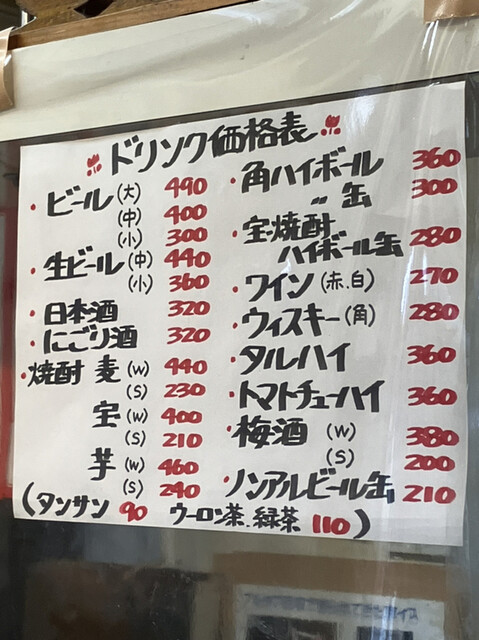 ドリンク価格表
・ビール(大) 490
(中) 400
(小) 300
・生ビール(中) 440
(小) 360
・日本酒 320
・にごり酒 320
・焼酎 麦(W) 440
(S) 230
宝(W) 400
(S) 210
芋(W) 460
(S) 240
・角ハイボール 360
〃 缶 300
・宝焼酎
ハイボール缶 280
・ワイン(赤.白) 270
・ウィスキー(角) 280
・タルハイ 360
・トマトチューハイ 360
・梅酒 (W) 380
(S) 200
・ノンアルビール缶 210
(タンサン 90 ウーロン茶.緑茶 110)